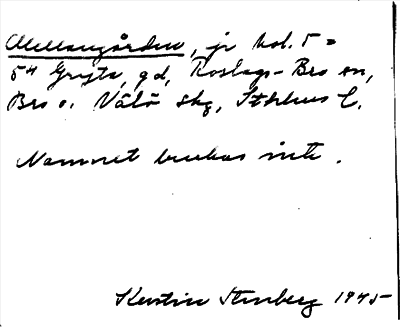 Mellangården, jr kol. 5 =
5⁴ Gryta, gd, Roslags-Bro sn,
Bro o. Väljö skg, Sthlms l.
Namnet brukas inte.
Kerstin Stenberg 1945